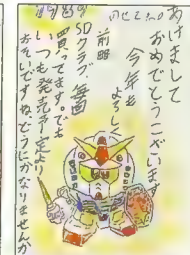 あけまして
おめでとうございます
今年も
よろしく
前略
SDクラブ、毎回
買ってます。でも
いつも発売予定より
おそいですね、どうにかなりませんか